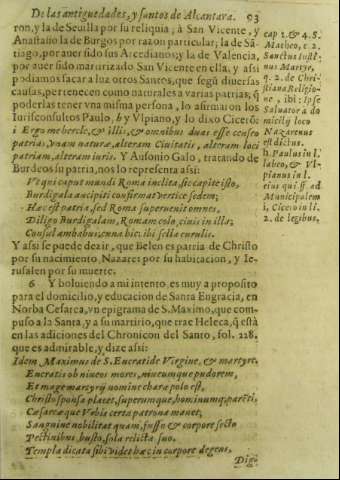 De las antiguedades, y santos de Alcantara. 93
ron, y la de Seuilla por su reliquia; à San Vicente, y
Anastasio la de Burgos por razon particular; la de Sã-
tiago, por auer sido sus Arcedianos; y la de Valencia,
por auer sido martirizado San Vicente en ella. y assi
podiamos sacar a luz otros Santos, que segũ diuersas
causas, pertenecen como naturales a varias patrias; q̃
poderlas tener vna misma persona, lo afirmaron los
Iurisconsultos Paulo, h y Vlpiano, y lo dixo Cicerõ:
i Ergo mehercle, & illis, & omnibus duas esse censeo
patrias, vnam naturæ, alteram Ciuitatis, alteram loci
patriam, alteram iuris. Y Ausonio Galo, tratando de
Burdeos su patria, nos lo representa assi:
Vt qui caput mundi Roma inclita, sic capite isto,
Burdigala ancipiti confirmat vertice sedem;
Hæc est patria, sed Roma superuenit omnes,
Diligo Burdigalam, Romam colo, ciuis in illa;
Consul ambabus; cunæ hic: ibi sella curulis.
Y assi se puede dezir, que Belen es patria de Christo
por su nacimiento, Nazaret por su habitacion, y Ie-
rusalen por su muerte.
6 Y boluiendo a mi intento, es muy a proposito
para el domicilio, y educacion de Santa Engracia, en
Norba Cesarea, vn epigrama de S. Maximo, que com-
puso a la Santa, y a su martirio, que trae Heleca, q̃ està
en las adiciones del Chronicon del Santo, fol. 228.
que es admirable, y dize assi:
Idem Maximus de S. Encratide Virgine, & martyre,
Encratis ob niueos mores, niueumque pudorem,
Et magè martyrij nomine chara polo est,
Christo sponsa placet, superumque, hominumq; parẽti,
Cæsareæque Vrbis certa patrona manet,
Sanguine nobilitat quam, fusso & corpore secto
Pectinibus, busto, sola relicta suo.
Templa dicata sibi videt hæc in corpore degens,
Dignũ
cap 1. & 4. S.
Matheo, c. 2.
Sanctus Iusti-
nus Martyr,
q. 2. de Chri-
stiana Religio-
ne, ibi: Ipse
Saluator a do
micilij loco
Nazarenus
est dictus.
h. Paulus in l.
labeo, & Vl-
pianus in l.
eius qui ff ad
Municipalem
i, Cicero in li.
2. de legibus,